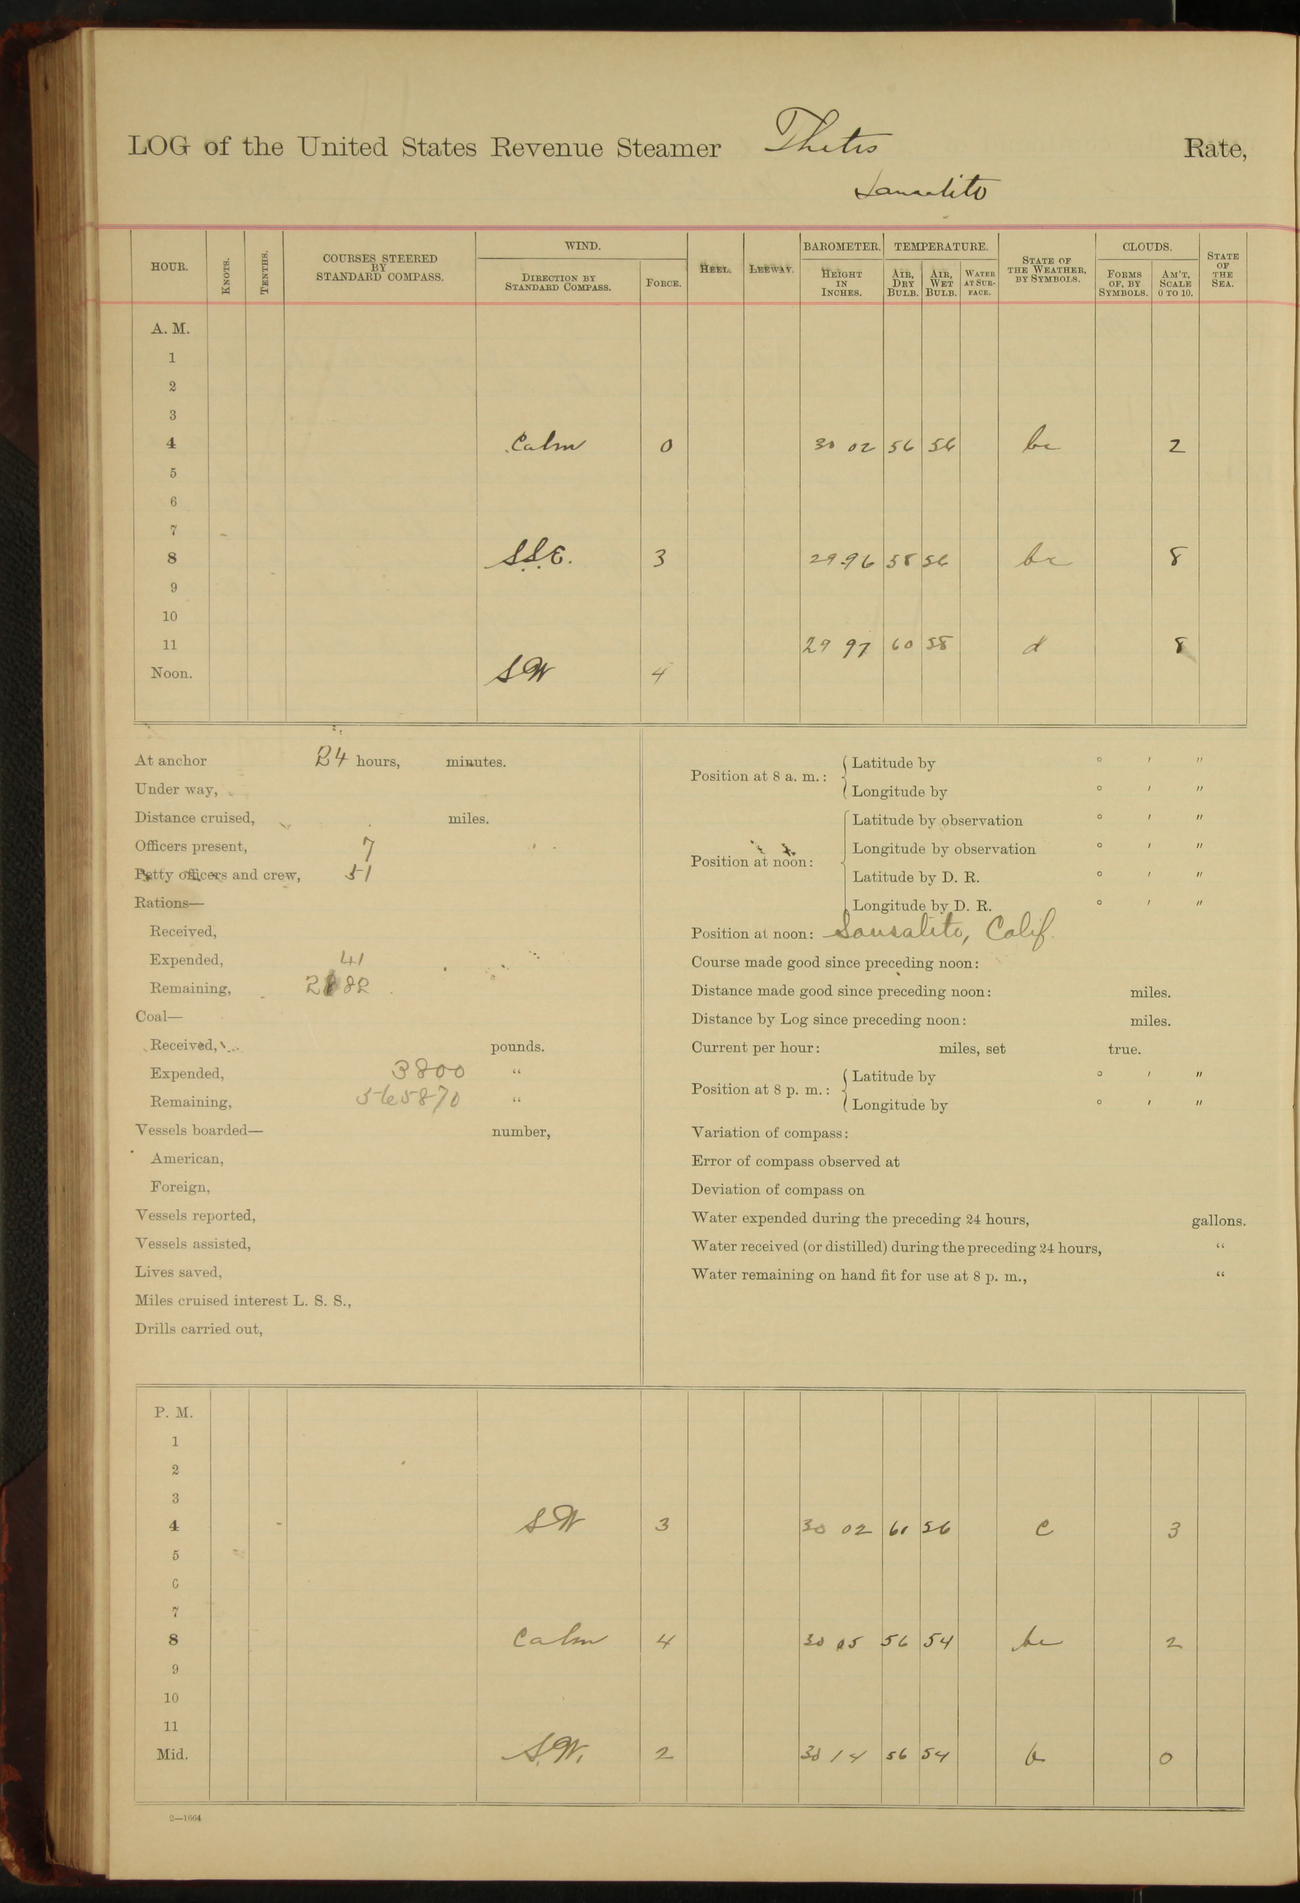 LOG of the United States Revenue Steamer Thetis Rate,
Sausalito
HOUR. KNOTS. TENTHS. COURSES STEERED BY STANDARD COMPASS. WIND. DIRECTION BY STANDARD COMPASS. FORCE. HEEL. LEEWAY. BAROMETER. HEIGHT IN INCHES. TEMPERATURE. AIR, DRY BULB. AIR, WET BULB. WATER AT SURFACE. STATE OF THE WEATHER, BY SYMBOLS. CLOUDS. FORMS OF, BY SYMBOLS. AM'T, SCALE 0 TO 10. STATE OF THE SEA.
A. M.
1
2
3
4 Calm 0 30 02 56 56 bc 2
5
6
7
8 S.S.E. 3 29.96 58 56 bc 8
9
10
11 29 97 60 58 d 8
Noon. SW 4
At anchor 24 hours, minutes.
Under way,
Distance cruised, miles.
Officers present, 7
Petty officers and crew, 51
Rations—
Received,
Expended, 41
Remaining, 2182
Coal—
Received, pounds.
Expended, 3800 “
Remaining, 565870 “
Vessels boarded— number,
American,
Foreign,
Vessels reported,
Vessels assisted,
Lives saved,
Miles cruised interest L. S. S.,
Drills carried out,
Position at 8 a. m.: Latitude by ° ′ ″
Longitude by ° ′ ″
Position at noon: Latitude by observation ° ′ ″
Longitude by observation ° ′ ″
Latitude by D. R. ° ′ ″
Longitude by D. R. ° ′ ″
Position at noon: Sausalito, Calif.
Course made good since preceding noon:
Distance made good since preceding noon: miles.
Distance by Log since preceding noon: miles.
Current per hour: miles, set true.
Position at 8 p. m.: Latitude by ° ′ ″
Longitude by ° ′ ″
Variation of compass:
Error of compass observed at
Deviation of compass on
Water expended during the preceding 24 hours, gallons.
Water received (or distilled) during the preceding 24 hours, “
Water remaining on hand fit for use at 8 p. m., “
P. M.
1
2
3
4 SW 3 30 02 61 56 c 3
5
6
7
8 Calm 4 30 05 56 54 bc 2
9
10
11
Mid. S.W. 2 30 14 56 54 b 0
2—1664